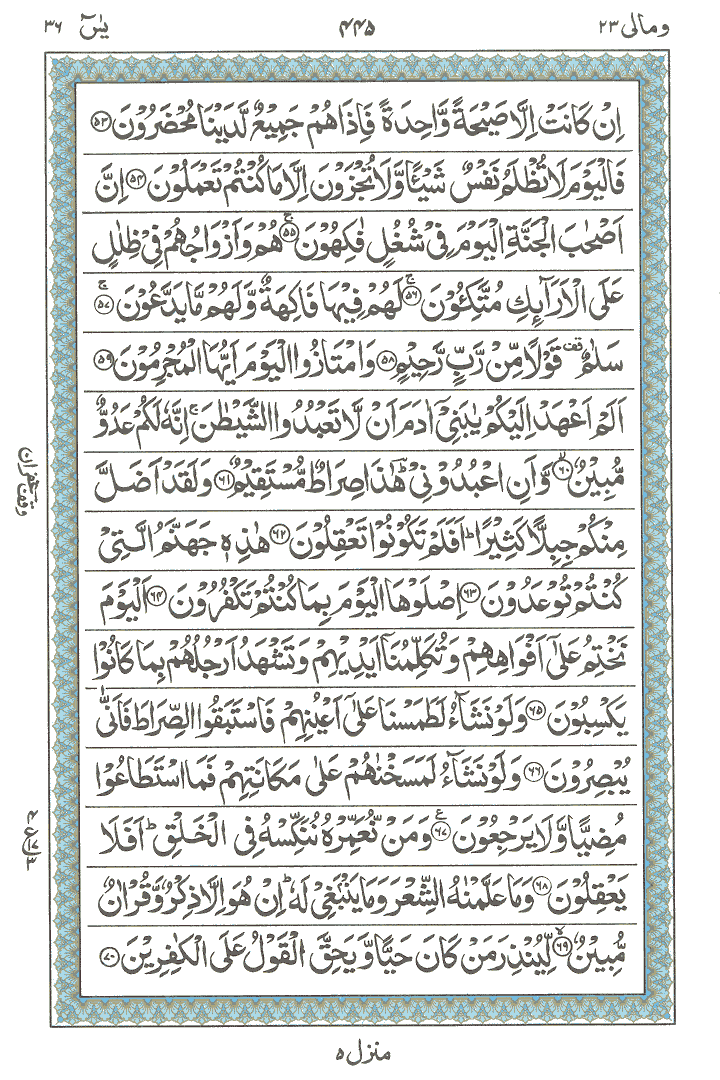 ومالی ۲۳ ۴۴۵ یٰسٓ ۳۶
اِنْ كَانَتْ اِلَّا صَيْحَةً وَّاحِدَةً فَاِذَا هُمْ جَمِيْعٌ لَّدَيْنَا مُحْضَرُوْنَ ﴿۵۳﴾
فَالْيَوْمَ لَا تُظْلَمُ نَفْسٌ شَيْـًٔا وَّلَا تُجْزَوْنَ اِلَّا مَا كُنْتُمْ تَعْمَلُوْنَ ﴿۵۴﴾ اِنَّ
اَصْحٰبَ الْجَنَّةِ الْيَوْمَ فِيْ شُغُلٍ فٰكِهُوْنَ ۚ﴿۵۵﴾ هُمْ وَاَزْوَاجُهُمْ فِيْ ظِلٰلٍ
عَلَى الْاَرَآئِكِ مُتَّكِـُٔوْنَ ۚ﴿۵۶﴾ لَهُمْ فِيْهَا فَاكِهَةٌ وَّلَهُمْ مَّا يَدَّعُوْنَ ۚ﴿۵۷﴾
سَلٰمٌ ۣ قَوْلًا مِّنْ رَّبٍّ رَّحِيْمٍ ﴿۵۸﴾ وَامْتَازُوا الْيَوْمَ اَيُّهَا الْمُجْرِمُوْنَ ﴿۵۹﴾
اَلَمْ اَعْهَدْ اِلَيْكُمْ يٰبَنِيْٓ اٰدَمَ اَنْ لَّا تَعْبُدُوا الشَّيْطٰنَ ۚ اِنَّهٗ لَكُمْ عَدُوٌّ
مُّبِيْنٌ ۙ﴿۶۰﴾ وَّاَنِ اعْبُدُوْنِيْ ؔؕ هٰذَا صِرَاطٌ مُّسْتَقِيْمٌ ﴿۶۱﴾ وَلَقَدْ اَضَلَّ
وقف غفران
مِنْكُمْ جِبِلًّا كَثِيْرًا ؕ اَفَلَمْ تَكُوْنُوْا تَعْقِلُوْنَ ﴿۶۲﴾ هٰذِهٖ جَهَنَّمُ الَّتِيْ
كُنْتُمْ تُوْعَدُوْنَ ﴿۶۳﴾ اِصْلَوْهَا الْيَوْمَ بِمَا كُنْتُمْ تَكْفُرُوْنَ ﴿۶۴﴾ اَلْيَوْمَ
نَخْتِمُ عَلٰٓى اَفْوَاهِهِمْ وَتُكَلِّمُنَآ اَيْدِيْهِمْ وَتَشْهَدُ اَرْجُلُهُمْ بِمَا كَانُوْا
يَكْسِبُوْنَ ﴿۶۵﴾ وَلَوْ نَشَآءُ لَطَمَسْنَا عَلٰٓى اَعْيُنِهِمْ فَاسْتَبَقُوا الصِّرَاطَ فَاَنّٰى
يُبْصِرُوْنَ ﴿۶۶﴾ وَلَوْ نَشَآءُ لَمَسَخْنٰهُمْ عَلٰى مَكَانَتِهِمْ فَمَا اسْتَطَاعُوْا
مُضِيًّا وَّلَا يَرْجِعُوْنَ ﴿۶۷﴾ ع وَمَنْ نُّعَمِّرْهُ نُنَكِّسْهُ فِي الْخَلْقِ ؕ اَفَلَا
يَعْقِلُوْنَ ﴿۶۸﴾ وَمَا عَلَّمْنٰهُ الشِّعْرَ وَمَا يَنْۢبَغِيْ لَهٗ ؕ اِنْ هُوَ اِلَّا ذِكْرٌ وَّقُرْاٰنٌ
مُّبِيْنٌ ۙ﴿۶۹﴾ لِّيُنْذِرَ مَنْ كَانَ حَيًّا وَّيَحِقَّ الْقَوْلُ عَلَى الْكٰفِرِيْنَ ﴿۷۰﴾
منزل ۵